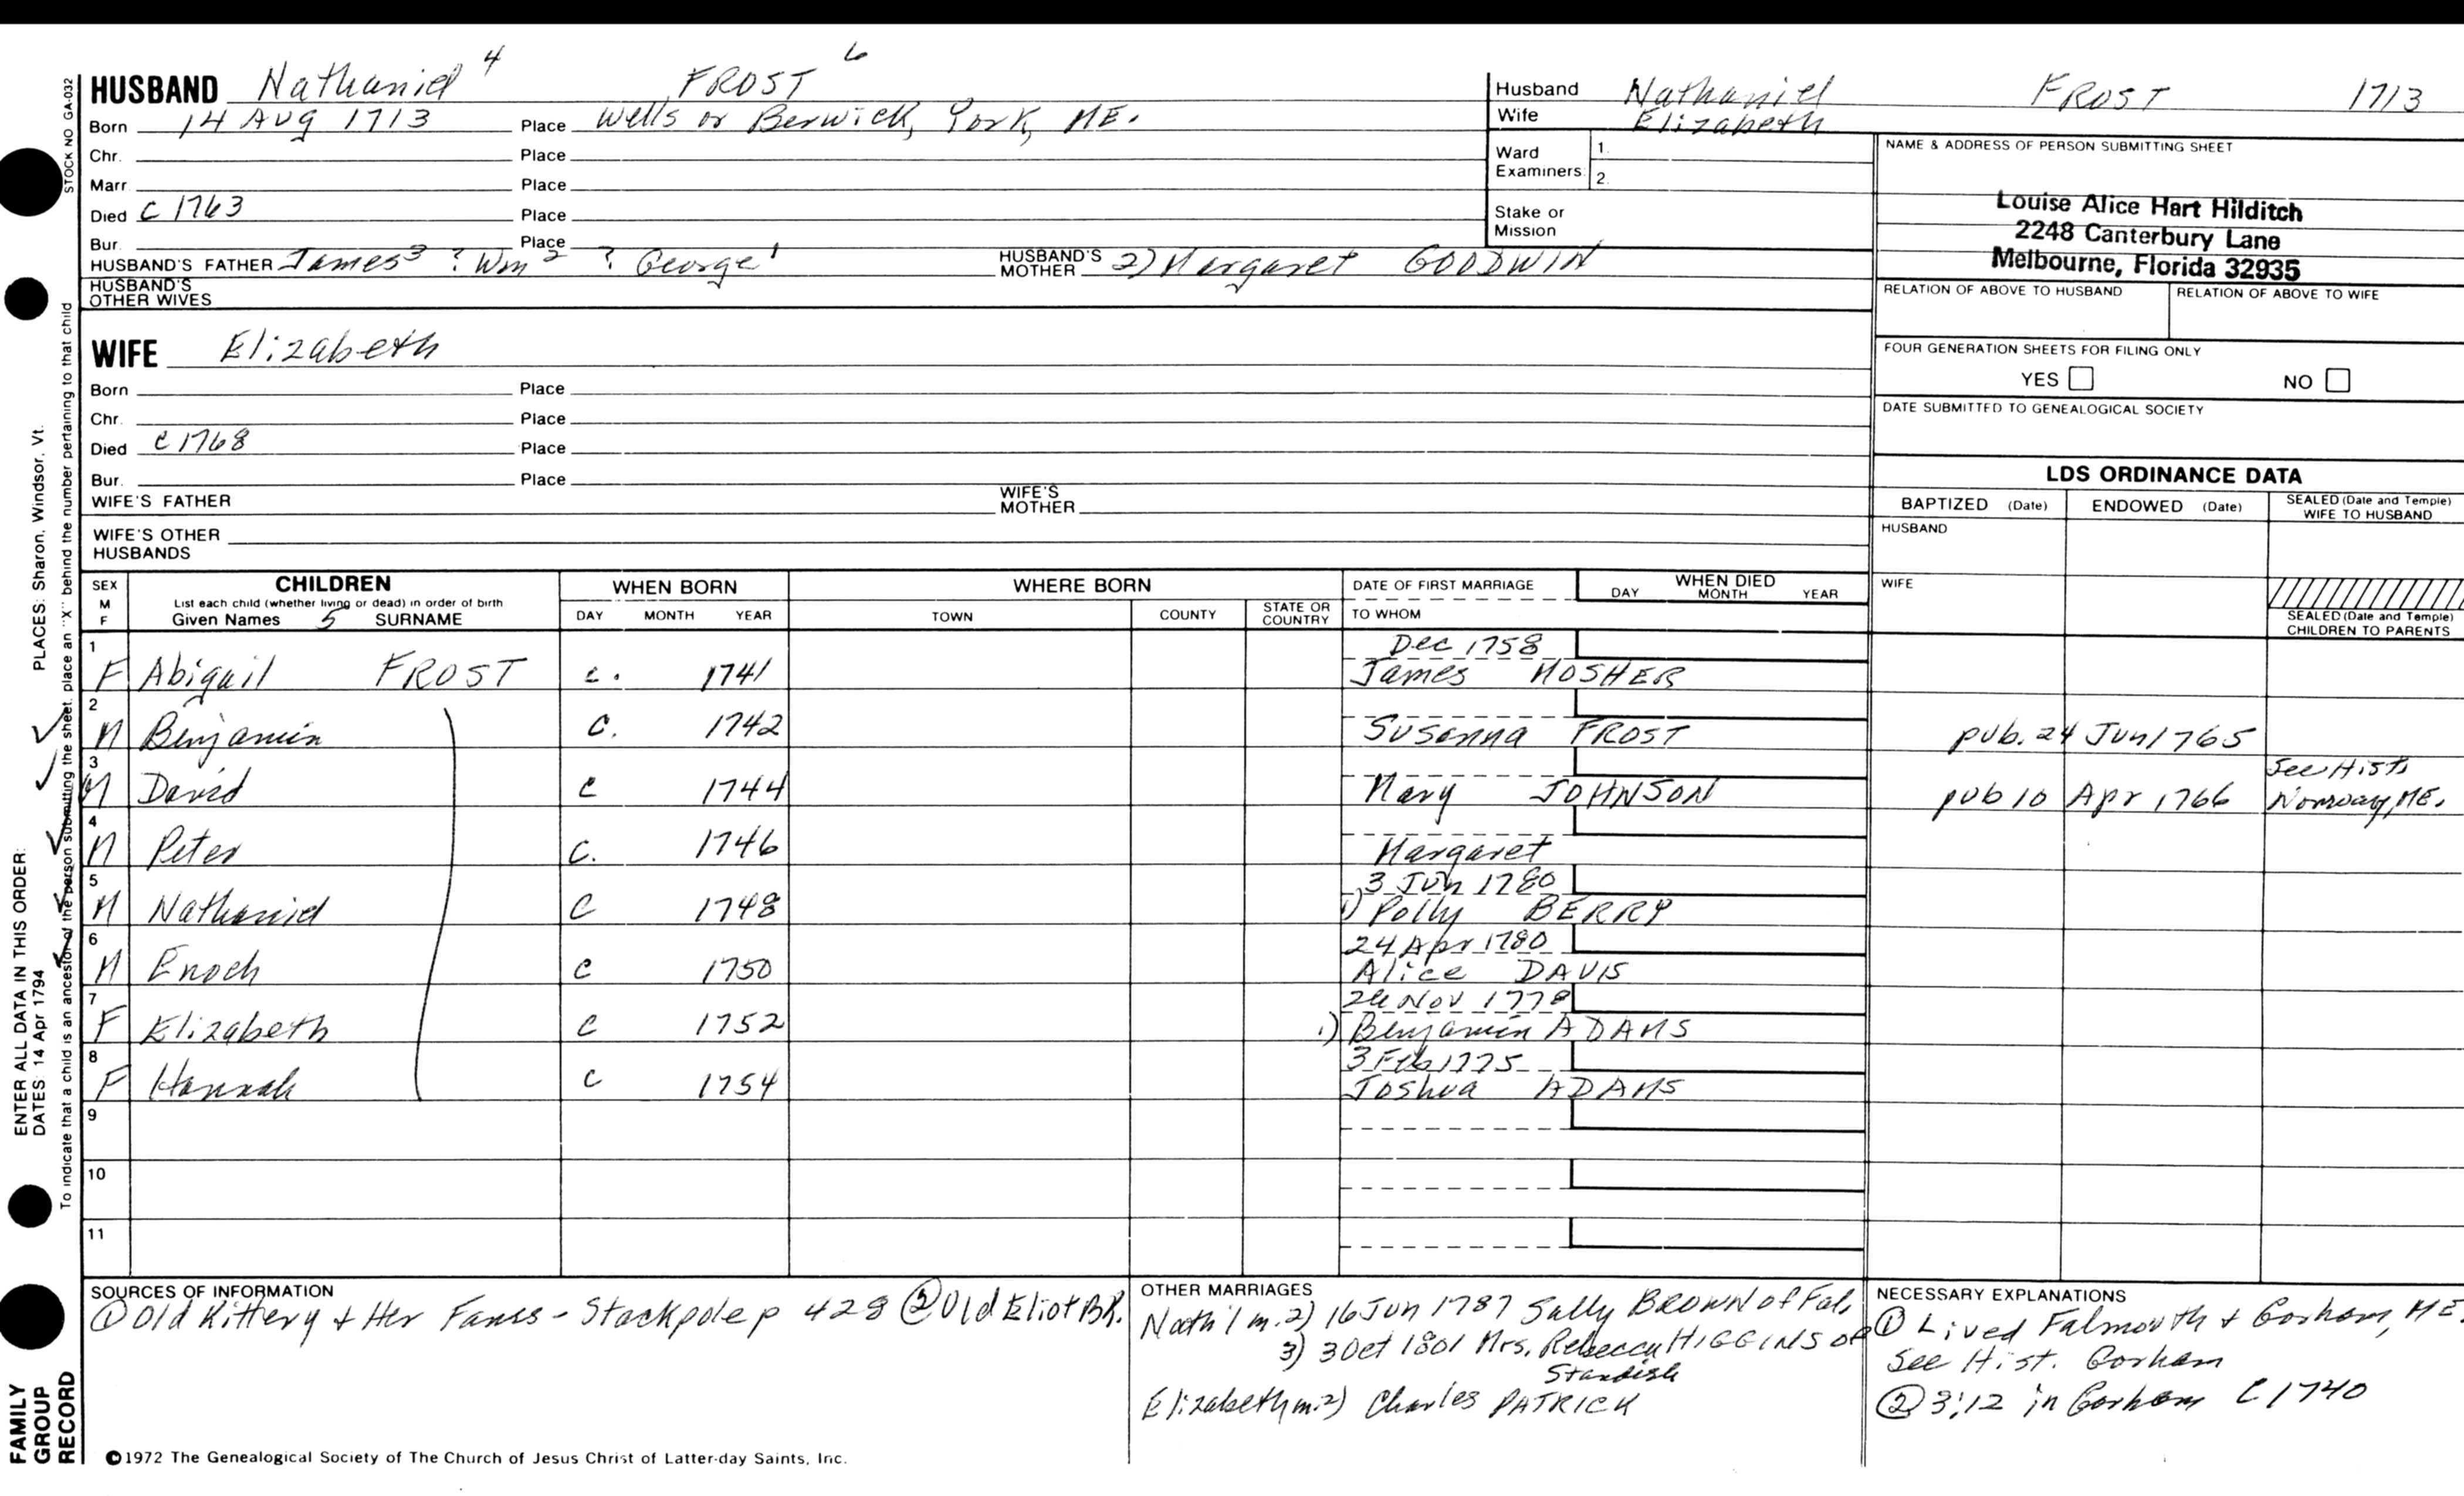 HUSBAND Nathaniel 4 FROST 6
Born 14 AUG 1713 Place Wells or Berwick, York, ME.
Chr. Place
Marr. Place
Died C 1763 Place
Bur. Place
HUSBAND'S FATHER James 3 ? Wm 2 ? George 1 HUSBAND'S MOTHER 2) Margaret GOODWIN
HUSBAND'S OTHER WIVES
Husband Nathaniel FROST 1713
Wife Elizabeth
Ward Examiners: 1.
2.
Stake or Mission
NAME & ADDRESS OF PERSON SUBMITTING SHEET
Louise Alice Hart Hilditch
2248 Canterbury Lane
Melbourne, Florida 32935
RELATION OF ABOVE TO HUSBAND RELATION OF ABOVE TO WIFE
FOUR GENERATION SHEETS FOR FILING ONLY
YES NO
DATE SUBMITTED TO GENEALOGICAL SOCIETY
WIFE Elizabeth
Born Place
Chr. Place
Died C 1768 Place
Bur. Place
WIFE'S FATHER WIFE'S MOTHER
WIFE'S OTHER HUSBANDS
LDS ORDINANCE DATA
BAPTIZED (Date) ENDOWED (Date) SEALED (Date and Temple) WIFE TO HUSBAND
HUSBAND
WIFE
SEALED (Date and Temple) CHILDREN TO PARENTS
SEX M F
CHILDREN
List each child (whether living or dead) in order of birth
Given Names 5 SURNAME
WHEN BORN
DAY MONTH YEAR
WHERE BORN
TOWN COUNTY STATE OR COUNTRY
DATE OF FIRST MARRIAGE
TO WHOM
WHEN DIED
DAY MONTH YEAR
1 Dec 1758
F Abigail FROST c. 1741 James MOSHER
2
M Benjamin C. 1742 Susanna FROST pub. 24 Jun 1765
3 See Hist
M David c 1744 Mary JOHNSON pub 10 Apr 1766 Norway, ME.
4
M Peter C. 1746 Margaret
5 3 Jun 1780
M Nathaniel C 1748 1) Polly BERRY
6 24 Apr 1780
M Enoch c 1750 Alice DAVIS
7 Nov 1778
F Elizabeth c 1752 1) Benjamin ADAMS
8 3 Feb 1775
F Hannah c 1754 Joshua ADAMS
9
10
11
SOURCES OF INFORMATION
① Old Kittery + Her Fams - Stackpole p 428 ② Old Eliot BK.
OTHER MARRIAGES
Nath'l m. 2) 16 Jun 1787 Sally BROWN of Fal.
3) 3 Oct 1801 Mrs. Rebecca HIGGINS of
Standish
Elizabeth m. 2) Charles PATRICK
NECESSARY EXPLANATIONS
① Lived Falmouth + Gorham, ME.
See Hist. Gorham
② 3:12 in Gorham C 1740
©1972 The Genealogical Society of The Church of Jesus Christ of Latter-day Saints, Inc.
FAMILY
GROUP
RECORD
ENTER ALL DATA IN THIS ORDER:
DATES: 14 Apr 1794 PLACES: Sharon, Windsor, Vt.
To indicate that a child is an ancestor of the person submitting the sheet, place an "X" behind the number pertaining to that child
STOCK NO GA-032